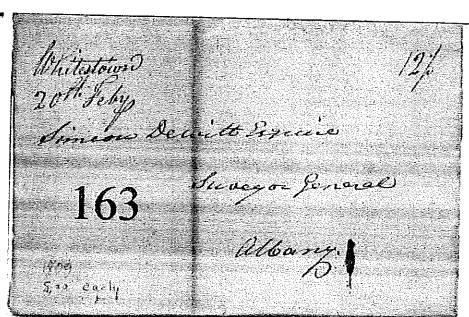 Whitestown 12½
20th Feby
Simeon Dewitt Esquire
Surveyor General
163
Albany.
early